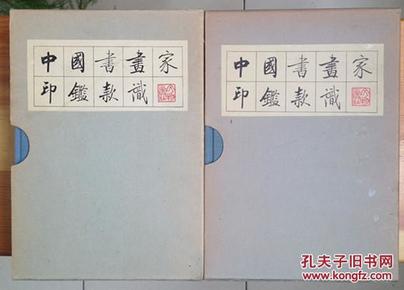 中國書畫家
印鑑款識
中國書畫家
印鑑款識
孔夫子旧书网
www.kongfz.com